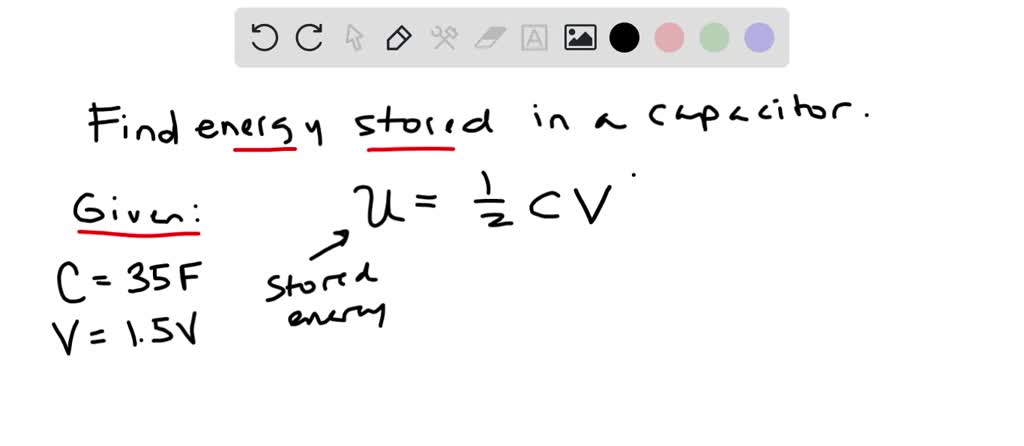 A
Find energy stored in a capacitor.
Given:
U = 1/2 CV
C = 35F
V = 1.5V
Stored
energy